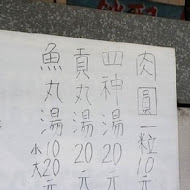 肉圓一粒10元
四神湯20元
貢丸湯20元
魚丸湯小10大20元